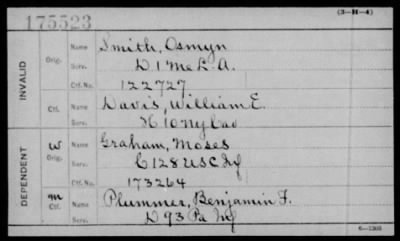 (3-H-4)
175523
INVALID
Orig. Name Smith, Osmyn
Serv. D 1 Me L. A.
Ctf. No. 122727
Ctf. Name Davis, William E.
Serv. H 10 Ny Cav
DEPENDENT
W Orig. Name Graham, Moses
Serv. C 128 U S C Inf
Ctf. No. 173264
M Ctf. Name Plummer, Benjamin F.
Serv. D 93 Pa Inf
6-1303